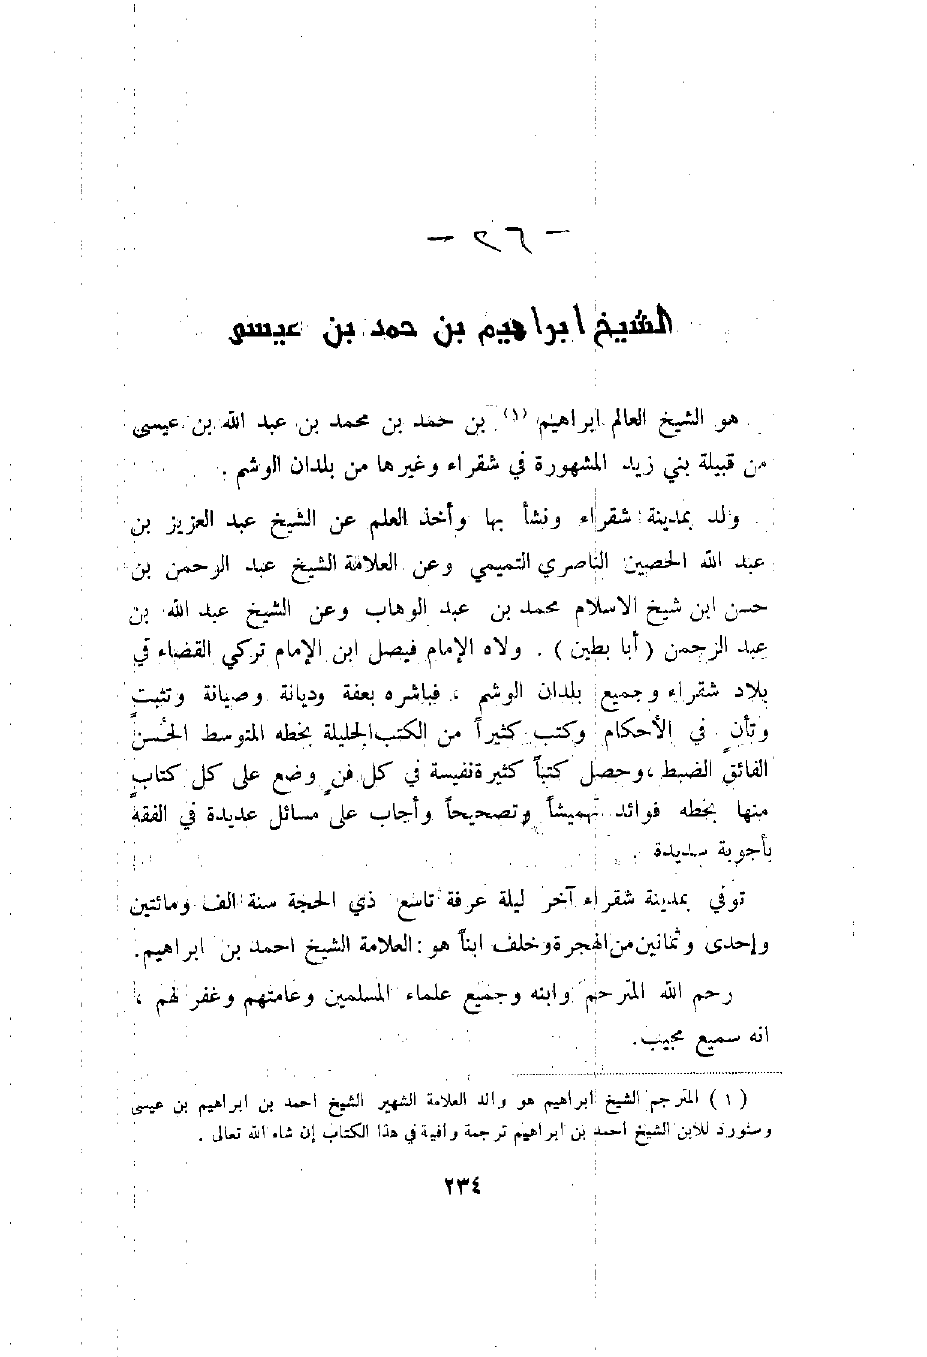 - ٢٦ -
الشيخ ابراهيم بن حمد بن عيسى
هو الشيخ العالم ابراهيم (١) بن حمد بن محمد بن عبد الله بن عيسى
من قبيلة بني زيد المشهورة في شقراء وغيرها من بلدان الوشم .
ولد بمدينة شقراء ونشأ بها وأخذ العلم عن الشيخ عبد العزيز بن
عبد الله الحصين الناصري التميمي وعن العلامة الشيخ عبد الرحمن بن
حسن ابن شيخ الاسلام محمد بن عبد الوهاب وعن الشيخ عبد الله بن
عبد الرحمن (أبا بطين) . ولاه الإمام فيصل ابن الإمام تركي القضاء في
بلاد شقراء وجميع بلدان الوشم ، فباشره بعفة وديانة وصيانة وتثبيتٍ
وتأنٍ في الأحكام وكتب كثيراً من الكتب الجليلة بخطه المتوسط الحُسن
الفائق الضبط ، وحصل كتباً كثيرة نفيسة في كل فنٍ وضع على كل كتابٍ
منها بخطه فوائد تهميشاً وتصحيحاً وأجاب على مسائل عديدة في الفقة
بأجوبة سديدة .
توفي بمدينة شقراء آخر ليلة عرفة تاسع ذي الحجة سنة الف ومائتين
وإحدى وثمانين من الهجرة وخلف ابناً هو : العلامة الشيخ احمد بن ابراهيم.
رحم الله المترحم وابنه وجميع علماء المسلمين وعامتهم وغفر لهم ،
انه سميع مجيب.
(١) المترجم الشيخ ابراهيم هو والد العلامة الشهير الشيخ احمد بن ابراهيم بن عيسى
وسنورد للابن الشيخ أحمد بن ابراهيم ترجمة وافية في هذا الكتاب إن شاء الله تعالى .
٢٣٤